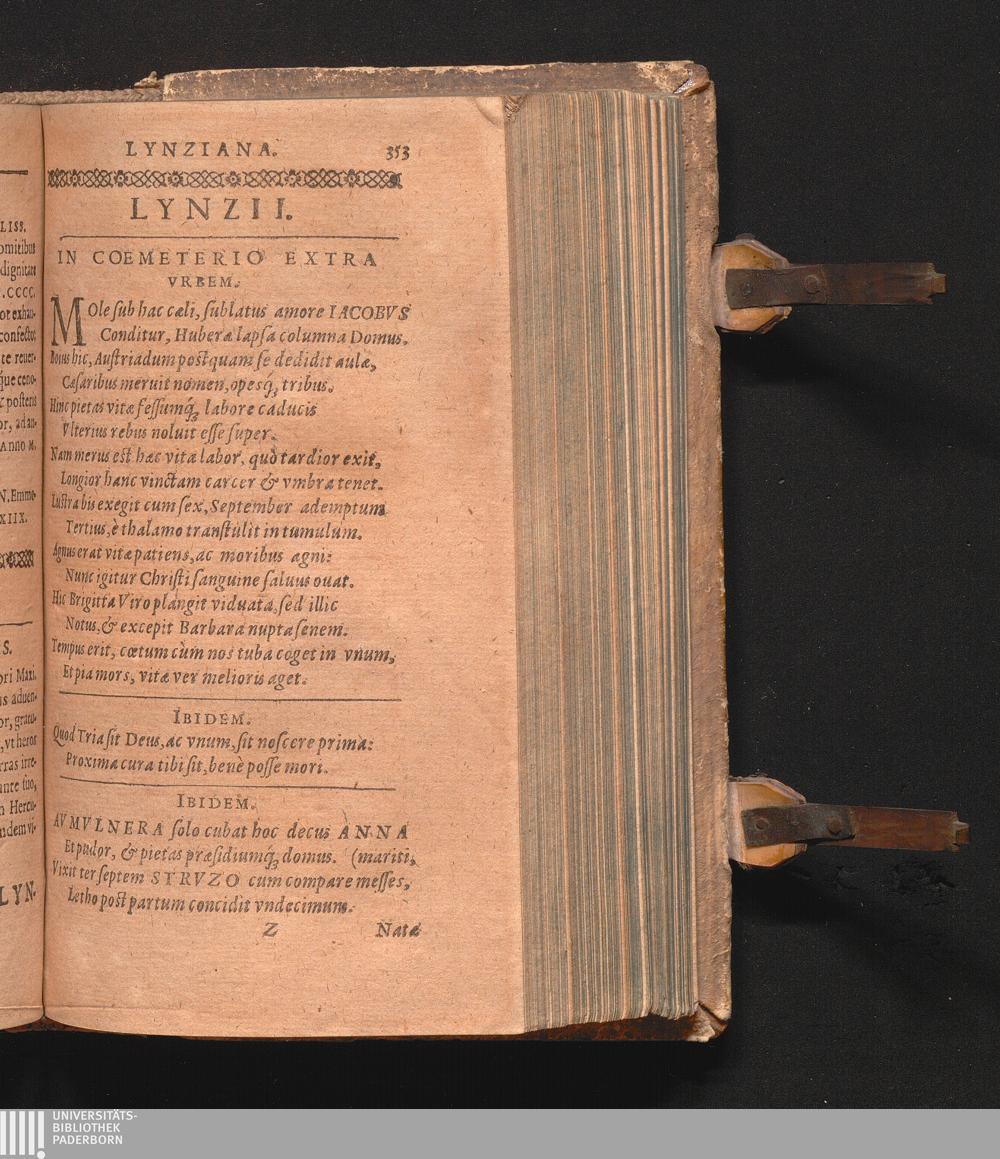 LISS.
omitibus
dignitate
.CCCC.
or exhau-
confectos
te reuer-
que ceno-
& postens
or, ad an-
Anno M.
N. Emme-
XIIX.
S.
ori Maxi.
is aduen-
or, gratu-
, vt heros
rras irre-
ante suo,
n Hercu-
ndem vi-
LYN-
LYNZIANA. 353
LYNZII.
IN COEMETERIO EXTRA
VRBEM.
MOle sub hac cæli, sublatus amore IACOBVS
Conditur, Huberæ lapsa columna Domus.
Bonus hic, Austriadum postquam se dedidit aulæ,
Cæsaribus meruit nomen, opesq́, tribus.
Hinc pietas vitæ fessumq́, labore caducis
Vlterius rebus noluit esse super.
Nam merus est hæc vita labor, quò tardior exit,
Longior hanc vinctam carcer & vmbra tenet.
Lustra bis exegit cum sex, September ademptum
Tertius, è thalamo transtulit in tumulum.
Agnus erat vitæ patiens, ac moribus agni:
Nunc igitur Christi sanguine saluus ouat.
Hic Brigitta Viro plangit viduata, sed illic
Notus, & excepit Barbara nupta senem.
Tempus erit, cœtum cùm nos tuba coget in vnum,
Et pia mors, vitæ ver melioris aget.
IBIDEM.
Quod Tria sit Deus, ac vnum, sit noscere prima:
Proxima cura tibi sit, benè posse mori.
IBIDEM.
AVMVLNERA solo cubat hoc decus ANNA
Et pudor, & pietas præsidiumq́, domus. (mariti,
Vixit ter septem STRVZO cum compare messes,
Letho post partum concidit vndecimum.
Z Natæ
UNIVERSITÄTS-
BIBLIOTHEK
PADERBORN